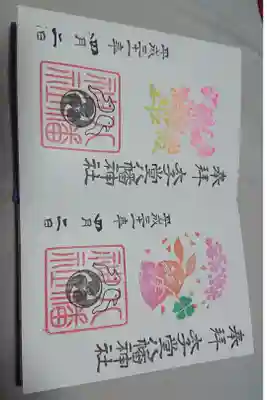 奉拝 太子堂八幡神社
平成三十一年 四月 二日
奉拝 太子堂八幡神社
平成三十一年 四月 二日